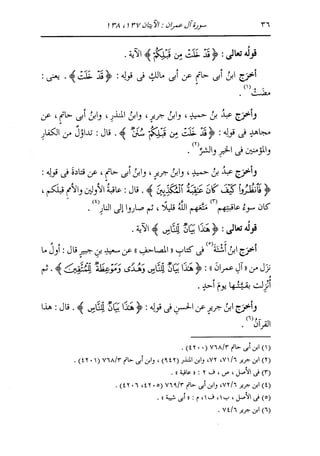 ٣٦ سورة آل عمران : الآيتان ١٣٧، ١٣٨
قولُه تعالى : ﴿ قَدْ خَلَتْ مِن قَبْلِكُمْ ﴾ الآية .
أخرَج ابنُ أبى حاتمٍ عن أبى مالكٍ فى قولِه : ﴿ قَدْ خَلَتْ ﴾ . يعنى :
مضَتْ(١) .
وأخرَج عبدُ بنُ حميدٍ ، وابنُ جريرٍ ، وابنُ المنذرِ ، وابنُ أبى حاتمٍ ، عن
مجاهدٍ فى قولِه : ﴿ قَدْ خَلَتْ مِن قَبْلِكُمْ سُنَنٌ ﴾ . قال : تداوُلٌ من الكفارِ
والمؤمنين فى الخيرِ والشرِّ(٢) .
وأخرَج عبدُ بنُ حميدٍ ، وابنُ جريرٍ ، وابنُ أبى حاتمٍ ، عن قتادةَ فى قولِه :
﴿ فَانظُرُوا كَيْفَ كَانَ عَٰقِبَةُ الْمُكَذِّبِينَ ﴾ . قال : عاقبةُ الأولين والأممِ قبلَكم ،
كان سوءُ عاقبتِهم(٣) متَّعهم اللهُ قليلًا ، ثم صاروا إلى النارِ(٤) .
قولُه تعالى : ﴿ هَٰذَا بَيَانٌ لِّلنَّاسِ ﴾ الآية .
أخرَج ابنُ أَشْتَةَ(٥) فى كتابِ « المصاحفِ » عن سعيدِ بنِ جبيرٍ قال : أولُ ما
نزَل من « آلِ عمرانَ » : ﴿ هَٰذَا بَيَانٌ لِّلنَّاسِ وَهُدًى وَمَوْعِظَةٌ لِّلْمُتَّقِينَ ﴾ . ثم
أُنزِلت بقيَّتُها يومَ أحدٍ .
وأخرَج ابنُ جريرٍ عن الحسنِ فى قولِه : ﴿ هَٰذَا بَيَانٌ لِّلنَّاسِ ﴾ . قال : هذا
القرآنُ(٦) .
(١) ابن أبى حاتم ٧٦٨/٣ (٤٢٠٠) .
(٢) ابن جرير ٧١/٦، ٧٢، وابن المنذر (٩٤٢) ، وابن أبى حاتم ٧٦٨/٣ (٤٢٠١) .
(٣) فى الأصل ، ص ، ف ٢ : « عاقبة » .
(٤) ابن جرير ٧٢/٦، وابن أبى حاتم ٧٦٩/٣ (٤٢٠٥، ٤٢٠٦) .
(٥) فى الأصل ، ب١ ، ف١ ، م : « أبى شيبة » .
(٦) ابن جرير ٧٤/٦ .